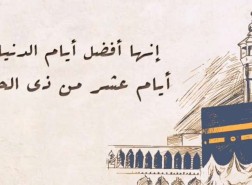 إنها أفضل أيام الدنيا
أيام عشر من ذى